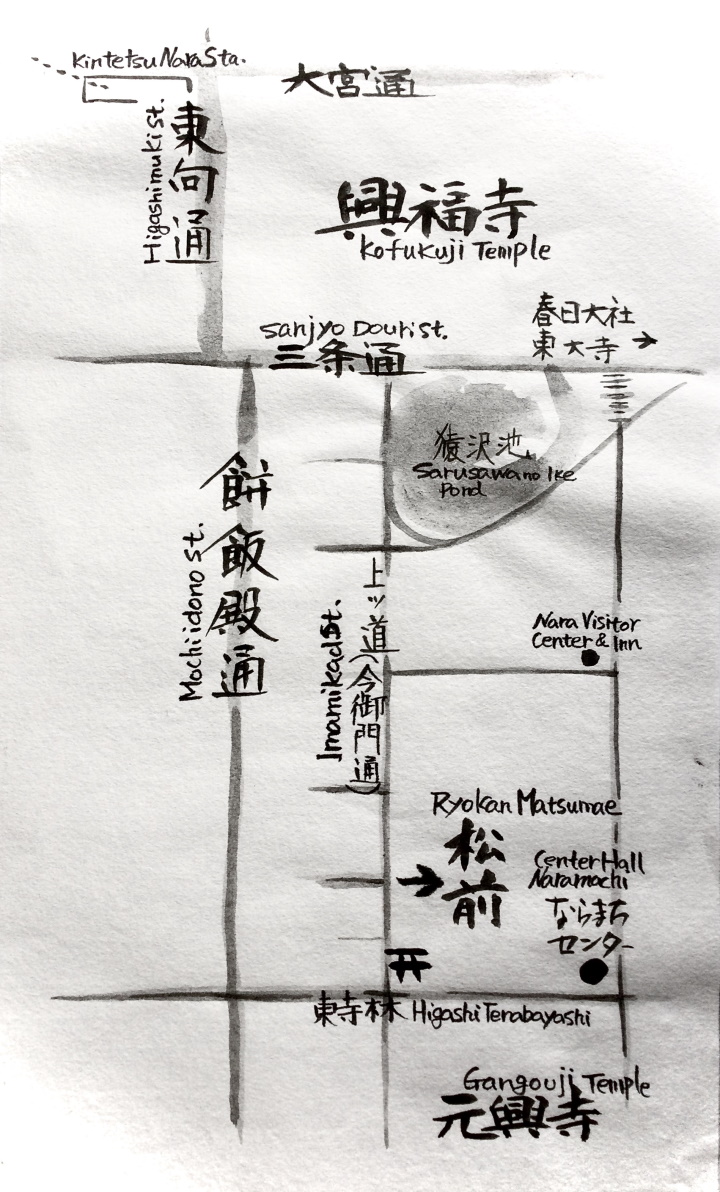 Kintetsu Nara Sta.
大宮通
Higashimuki st.
東向通
興福寺
Kofukuji Temple
春日大社
東大寺 →
Sanjyo Douri st.
三条通
猿沢池
Sarusawa no Ike
Pond
餅飯殿通
Mochiidono st.
上ッ道(今御門通)
Imamikad St.
Nara Visitor
Center & Inn
Ryokan Matsumae
→ 松前
Center Hall
Naramachi
ならまち
センター
東寺林 Higashi Terabayashi
Gangouji Temple
元興寺